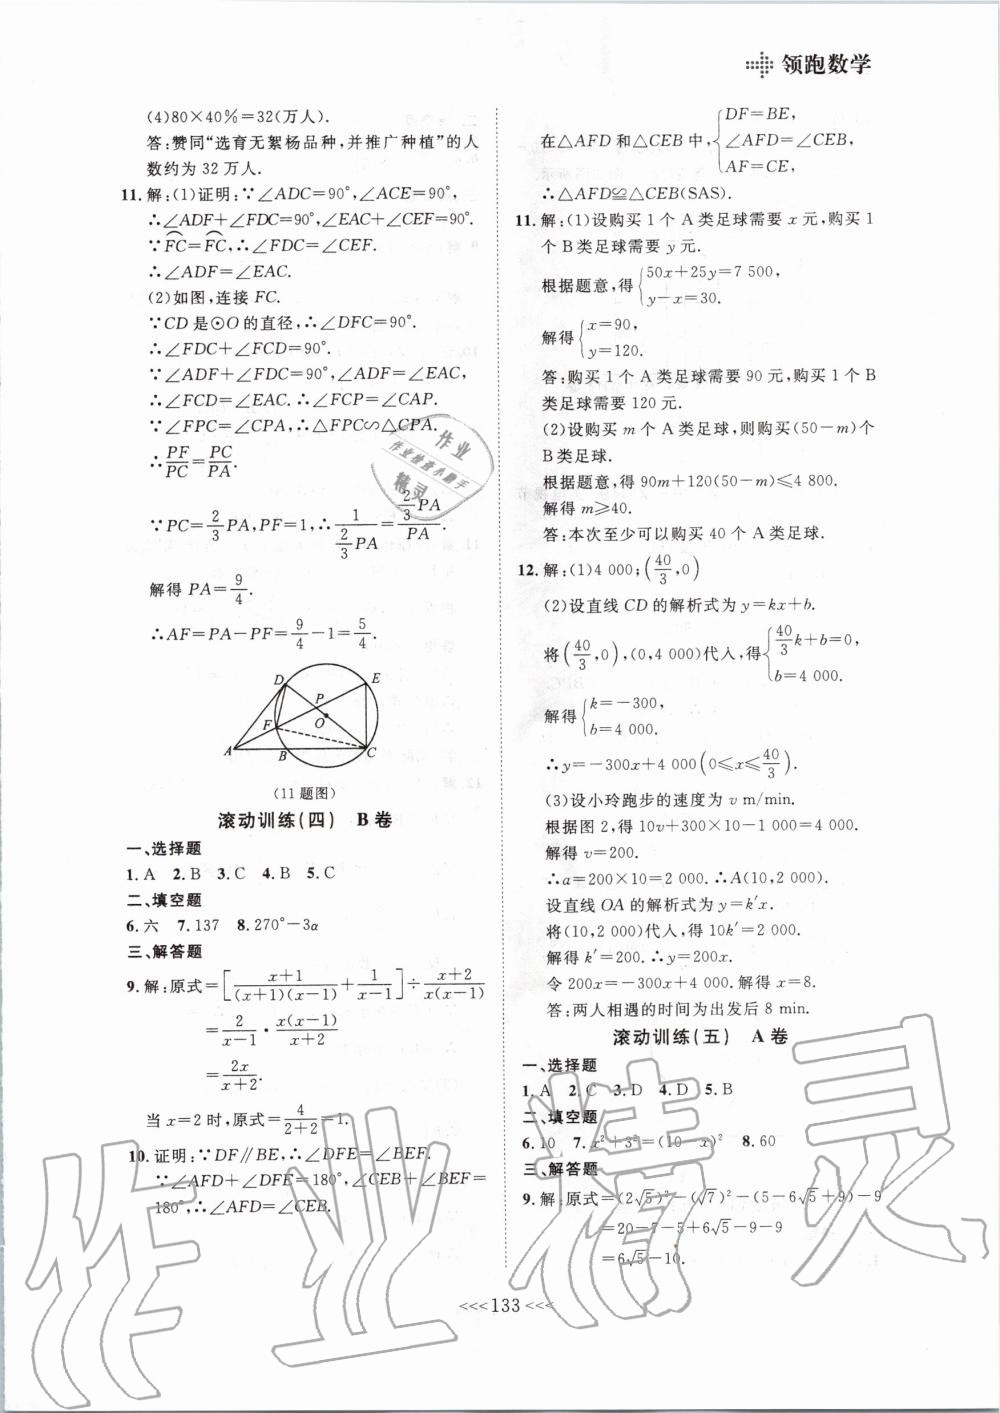 领跑数学
(4)80×40%=32(万人).
答:赞同“选育无絮杨品种,并推广种植”的人
数约为 32 万人.
11.解:(1)证明:∵∠ADC=90°,∠ACE=90°,
∴∠ADF+∠FDC=90°,∠EAC+∠CEF=90°.
∵⌒FC=⌒FC,∴∠FDC=∠CEF.
∴∠ADF=∠EAC.
(2)如图,连接 FC.
∵CD 是⊙O 的直径,∴∠DFC=90°.
∴∠FDC+∠FCD=90°.
∵∠ADF+∠FDC=90°,∠ADF=∠EAC,
∴∠FCD=∠EAC.∴∠FCP=∠CAP.
∵∠FPC=∠CPA,∴△FPC∽△CPA.
∴PF/PC=PC/PA.
∵PC=2/3 PA,PF=1,∴1/(2/3 PA)=(2/3 PA)/PA.
解得 PA=9/4.
∴AF=PA-PF=9/4-1=5/4.
D E P O F A B C
(11 题图)
滚动训练(四) B 卷
一、选择题
1. A 2. B 3. C 4. B 5. C
二、填空题
6. 六 7. 137 8. 270°-3α
三、解答题
9.解:原式=[(x+1)/((x+1)(x-1))+1/(x-1)]÷(x+2)/(x(x-1))
=2/(x-1)·x(x-1)/(x+2)
=2x/(x+2).
当 x=2 时,原式=4/(2+2)=1.
10. 证明:∵DF∥BE,∴∠DFE=∠BEF.
∵∠AFD+∠DFE=180°,∠CEB+∠BEF=
180°,∴∠AFD=∠CEB.
在△AFD 和△CEB 中,{DF=BE,
∠AFD=∠CEB,
AF=CE,
∴△AFD≌△CEB(SAS).
11.解:(1)设购买 1 个 A 类足球需要 x 元,购买 1
个 B 类足球需要 y 元.
根据题意,得{50x+25y=7 500,
y-x=30.
解得{x=90,
y=120.
答:购买 1 个 A 类足球需要 90 元,购买 1 个 B
类足球需要 120 元.
(2)设购买 m 个 A 类足球,则购买(50-m)个
B 类足球.
根据题意,得 90m+120(50-m)≤4 800.
解得 m≥40.
答:本次至少可以购买 40 个 A 类足球.
12.解:(1)4 000;(40/3,0)
(2)设直线 CD 的解析式为 y=kx+b.
将(40/3,0),(0,4 000)代入,得{40/3 k+b=0,
b=4 000.
解得{k=-300,
b=4 000.
∴y=-300x+4 000(0≤x≤40/3).
(3)设小玲跑步的速度为 v m/min.
根据图 2,得 10v+300×10-1 000=4 000.
解得 v=200.
∴a=200×10=2 000.∴A(10,2 000).
设直线 OA 的解析式为 y=k′x.
将(10,2 000)代入,得 10k′=2 000.
解得 k′=200.∴y=200x.
令 200x=-300x+4 000.解得 x=8.
答:两人相遇的时间为出发后 8 min.
滚动训练(五) A 卷
一、选择题
1. A 2. C 3. D 4. D 5. B
二、填空题
6. 10 7. x²+3²=(10-x)² 8. 60
三、解答题
9.解:原式=(2√5)²-(√7)²-(5-6√5+9)-9
=20-7-5+6√5-9-9
=6√5-10.
<<<133<<<
作业
作业检查小助手
精灵
作业精灵